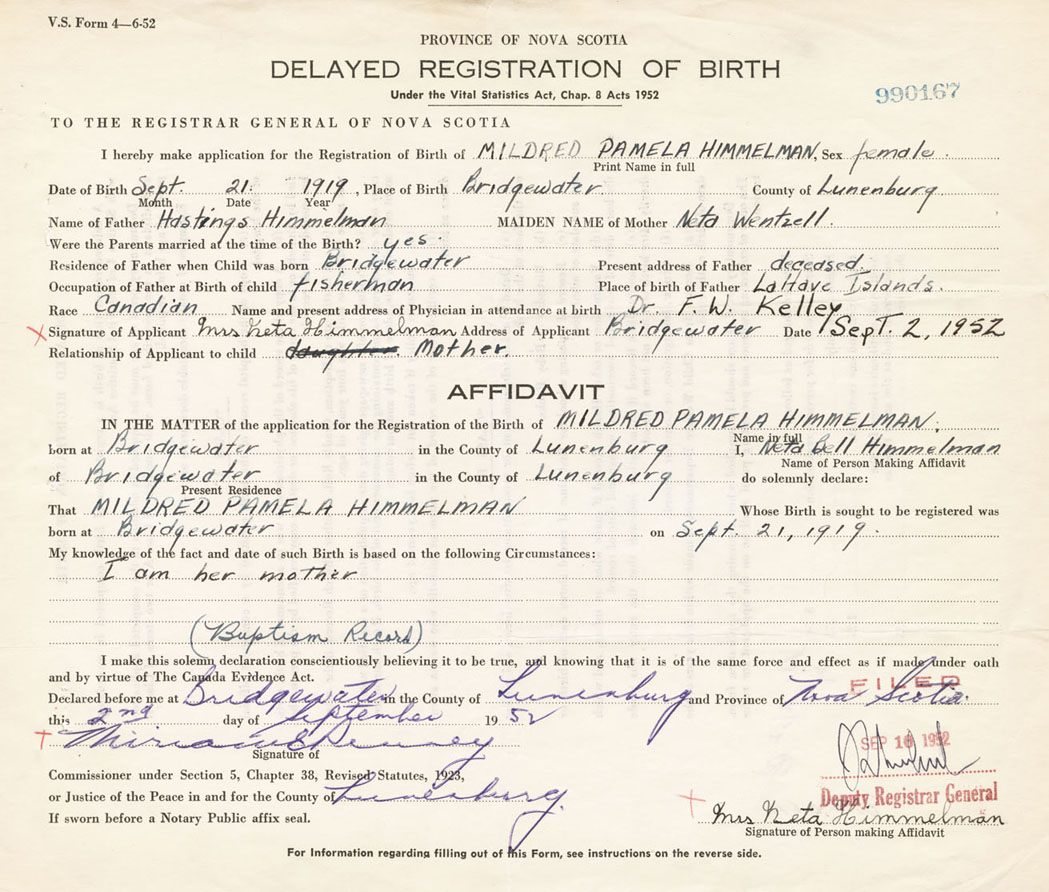 V.S. Form 4—6-52
PROVINCE OF NOVA SCOTIA
DELAYED REGISTRATION OF BIRTH
Under the Vital Statistics Act, Chap. 8 Acts 1952
990167
TO THE REGISTRAR GENERAL OF NOVA SCOTIA
I hereby make application for the Registration of Birth of MILDRED PAMELA HIMMELMAN, Sex female.
Print Name in full
Date of Birth Sept. 21. 1919, Place of Birth Bridgewater County of Lunenburg
Month Date Year
Name of Father Hastings Himmelman MAIDEN NAME of Mother Neta Wentzell.
Were the Parents married at the time of the Birth? yes.
Residence of Father when Child was born Bridgewater Present address of Father deceased.
Occupation of Father at Birth of child fisherman Place of birth of Father LaHave Islands.
Race Canadian Name and present address of Physician in attendance at birth Dr. F. W. Kelley
X Signature of Applicant Mrs Neta Himmelman Address of Applicant Bridgewater Date Sept. 2, 1952
Relationship of Applicant to child daughter. Mother.
AFFIDAVIT
IN THE MATTER of the application for the Registration of the Birth of MILDRED PAMELA HIMMELMAN.
Name in full
born at Bridgewater in the County of Lunenburg I, Neta Bell Himmelman
Name of Person Making Affidavit
of Bridgewater in the County of Lunenburg do solemnly declare:
Present Residence
That MILDRED PAMELA HIMMELMAN Whose Birth is sought to be registered was
born at Bridgewater on Sept. 21, 1919.
My knowledge of the fact and date of such Birth is based on the following Circumstances:
I am her mother
(Baptism Record)
I make this solemn declaration conscientiously believing it to be true, and knowing that it is of the same force and effect as if made under oath
and by virtue of The Canada Evidence Act.
FILED
Declared before me at Bridgewater in the County of Lunenburg and Province of Nova Scotia.
this 2nd day of September 19 52
SEP 10 1952
Signature of
Commissioner under Section 5, Chapter 38, Revised Statutes, 1923,
or Justice of the Peace in and for the County of Lunenburg.
Deputy Registrar General
If sworn before a Notary Public affix seal.
Mrs Neta Himmelman
Signature of Person making Affidavit
For Information regarding filling out of this Form, see instructions on the reverse side.